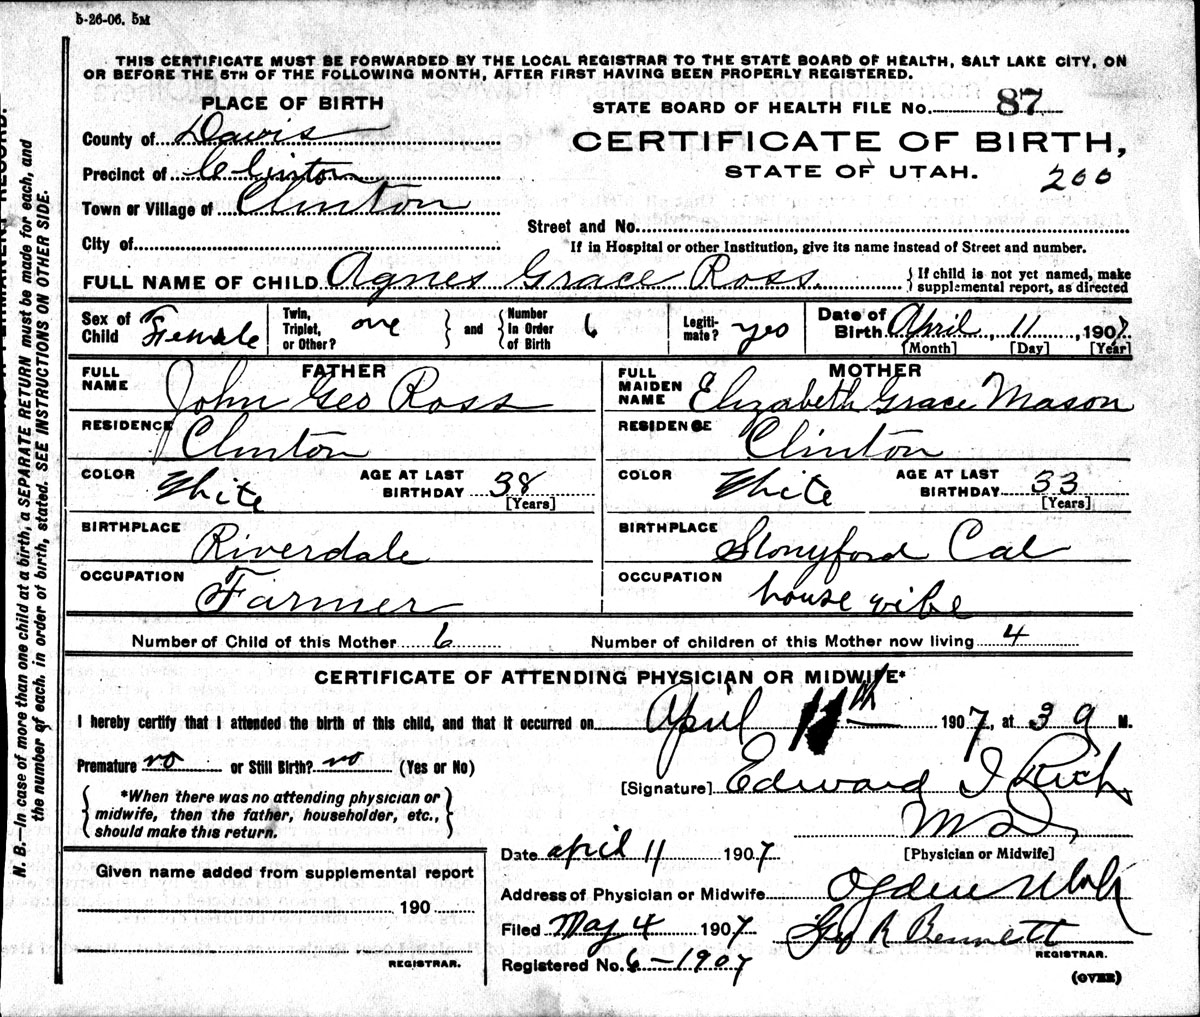 5-26-06. 5M
THIS CERTIFICATE MUST BE FORWARDED BY THE LOCAL REGISTRAR TO THE STATE BOARD OF HEALTH, SALT LAKE CITY, ON
OR BEFORE THE 5TH OF THE FOLLOWING MONTH, AFTER FIRST HAVING BEEN PROPERLY REGISTERED.
PLACE OF BIRTH
STATE BOARD OF HEALTH FILE No. 87
County of Davis
CERTIFICATE OF BIRTH,
Precinct of Clinton
STATE OF UTAH. 200
Town or Village of Clinton
Street and No.
City of
If in Hospital or other Institution, give its name instead of Street and number.
FULL NAME OF CHILD Agnes Grace Ross. {If child is not yet named, make supplemental report, as directed
Sex of Child Female
Twin, Triplet, or Other? one } and { Number In Order of Birth 6
Legitimate? yes
Date of Birth April, 11, 1907
[Month] [Day] [Year]
FATHER
FULL NAME John Geo Ross
RESIDENCE Clinton
COLOR White AGE AT LAST BIRTHDAY 38 [Years]
BIRTHPLACE Riverdale
OCCUPATION Farmer
MOTHER
FULL MAIDEN NAME Elizabeth Grace Mason
RESIDENCE Clinton
COLOR White AGE AT LAST BIRTHDAY 33 [Years]
BIRTHPLACE Stonyford Cal
OCCUPATION house wife
Number of Child of this Mother 6 Number of children of this Mother now living 4
CERTIFICATE OF ATTENDING PHYSICIAN OR MIDWIFE*
I hereby certify that I attended the birth of this child, and that it occurred on April 11th 1907, at 3 a M.
Premature no or Still Birth? no (Yes or No)
[Signature] Edward I Rich
{*When there was no attending physician or midwife, then the father, householder, etc., should make this return.}
M D
[Physician or Midwife]
Date april 11 1907
Address of Physician or Midwife Ogden Utah
Filed May 4 1907 Geo R Bennett
REGISTRAR.
Registered No. 6-1907
(OVER)
Given name added from supplemental report
190
REGISTRAR.
N. B.—In case of more than one child at a birth, a SEPARATE RETURN must be made for each, and
the number of each, in order of birth, stated. SEE INSTRUCTIONS ON OTHER SIDE.
PERMANENT RECORD.